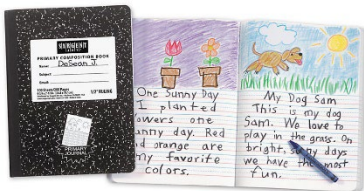 PRIMARY COMPOSITION BOOK
Name: DeSean J.
Subject
PRIMARY
JOURNAL
One Sunny Day
I planted
owers one
unny day. Red
d orange are
ny favorite
colors.
My Dog Sam
This is my dog
Sam. We love to
play in the grass. On
bright, days
we have the most
fun.